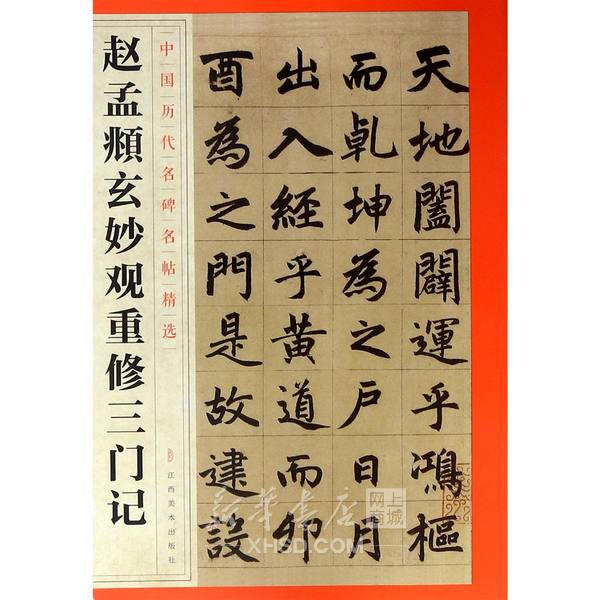 天地闔闢運乎鴻樞
而乹坤為之戶日月
出入經乎黃道而卯
酉為之門是故建設
中国历代名碑名帖精选
赵孟頫玄妙观重修三门记
江西美术出版社
新华书店
网上商城
XHSD.COM